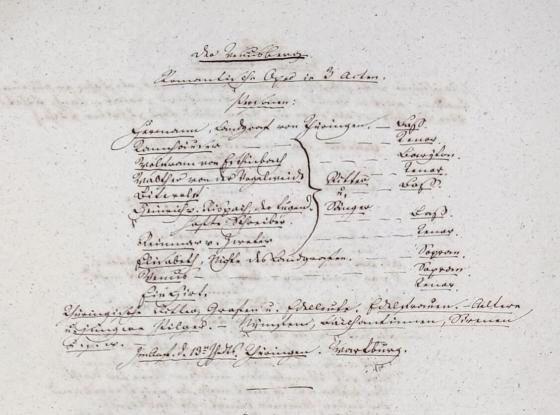 Der Venusberg.
Romantische Oper in 3 Acten.
Personen:
Hermann, Landgraf von Thüringen. — Bass.
Tannhäuser — Tenor.
Wolfram von Eschinbach — Baryton.
Walther von der Vogelweide — Tenor.
Biterolf — Ritter — Bass.
u.
Heinrich der Sänger
Schreiber. — Bass.
Reinmar v. Zweter — Tenor.
Elisabeth, Nichte des Landgrafen. — Sopran.
Venus — Sopran.
Ein Hirt. — Tenor.
Thüringische Ritter, Grafen u. Edelleute. Edelfrauen. — Aeltere
u. jüngere Pilger. — Nymphen, Bacchantinnen, Sirenen
Thüringen. Wartburg.